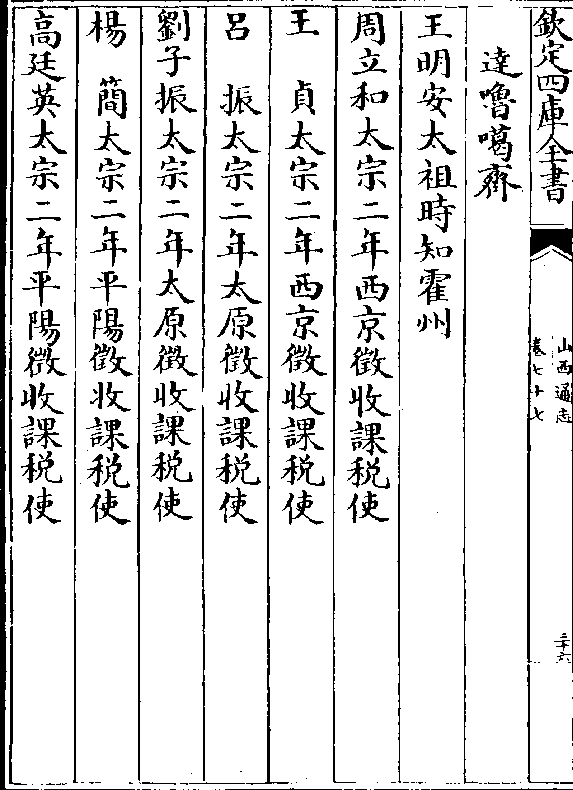 欽定四庫全書
山西通志
卷七十七
二十六
達嚕噶齊
王明安太祖時知霍州
周立和太宗二年西京徵收課稅使
王　貞太宗二年西京徵收課稅使
呂　振太宗二年太原徵收課稅使
劉子振太宗二年太原徵收課稅使
楊　簡太宗二年平陽徵收課稅使
高廷英太宗二年平陽徵收課稅使